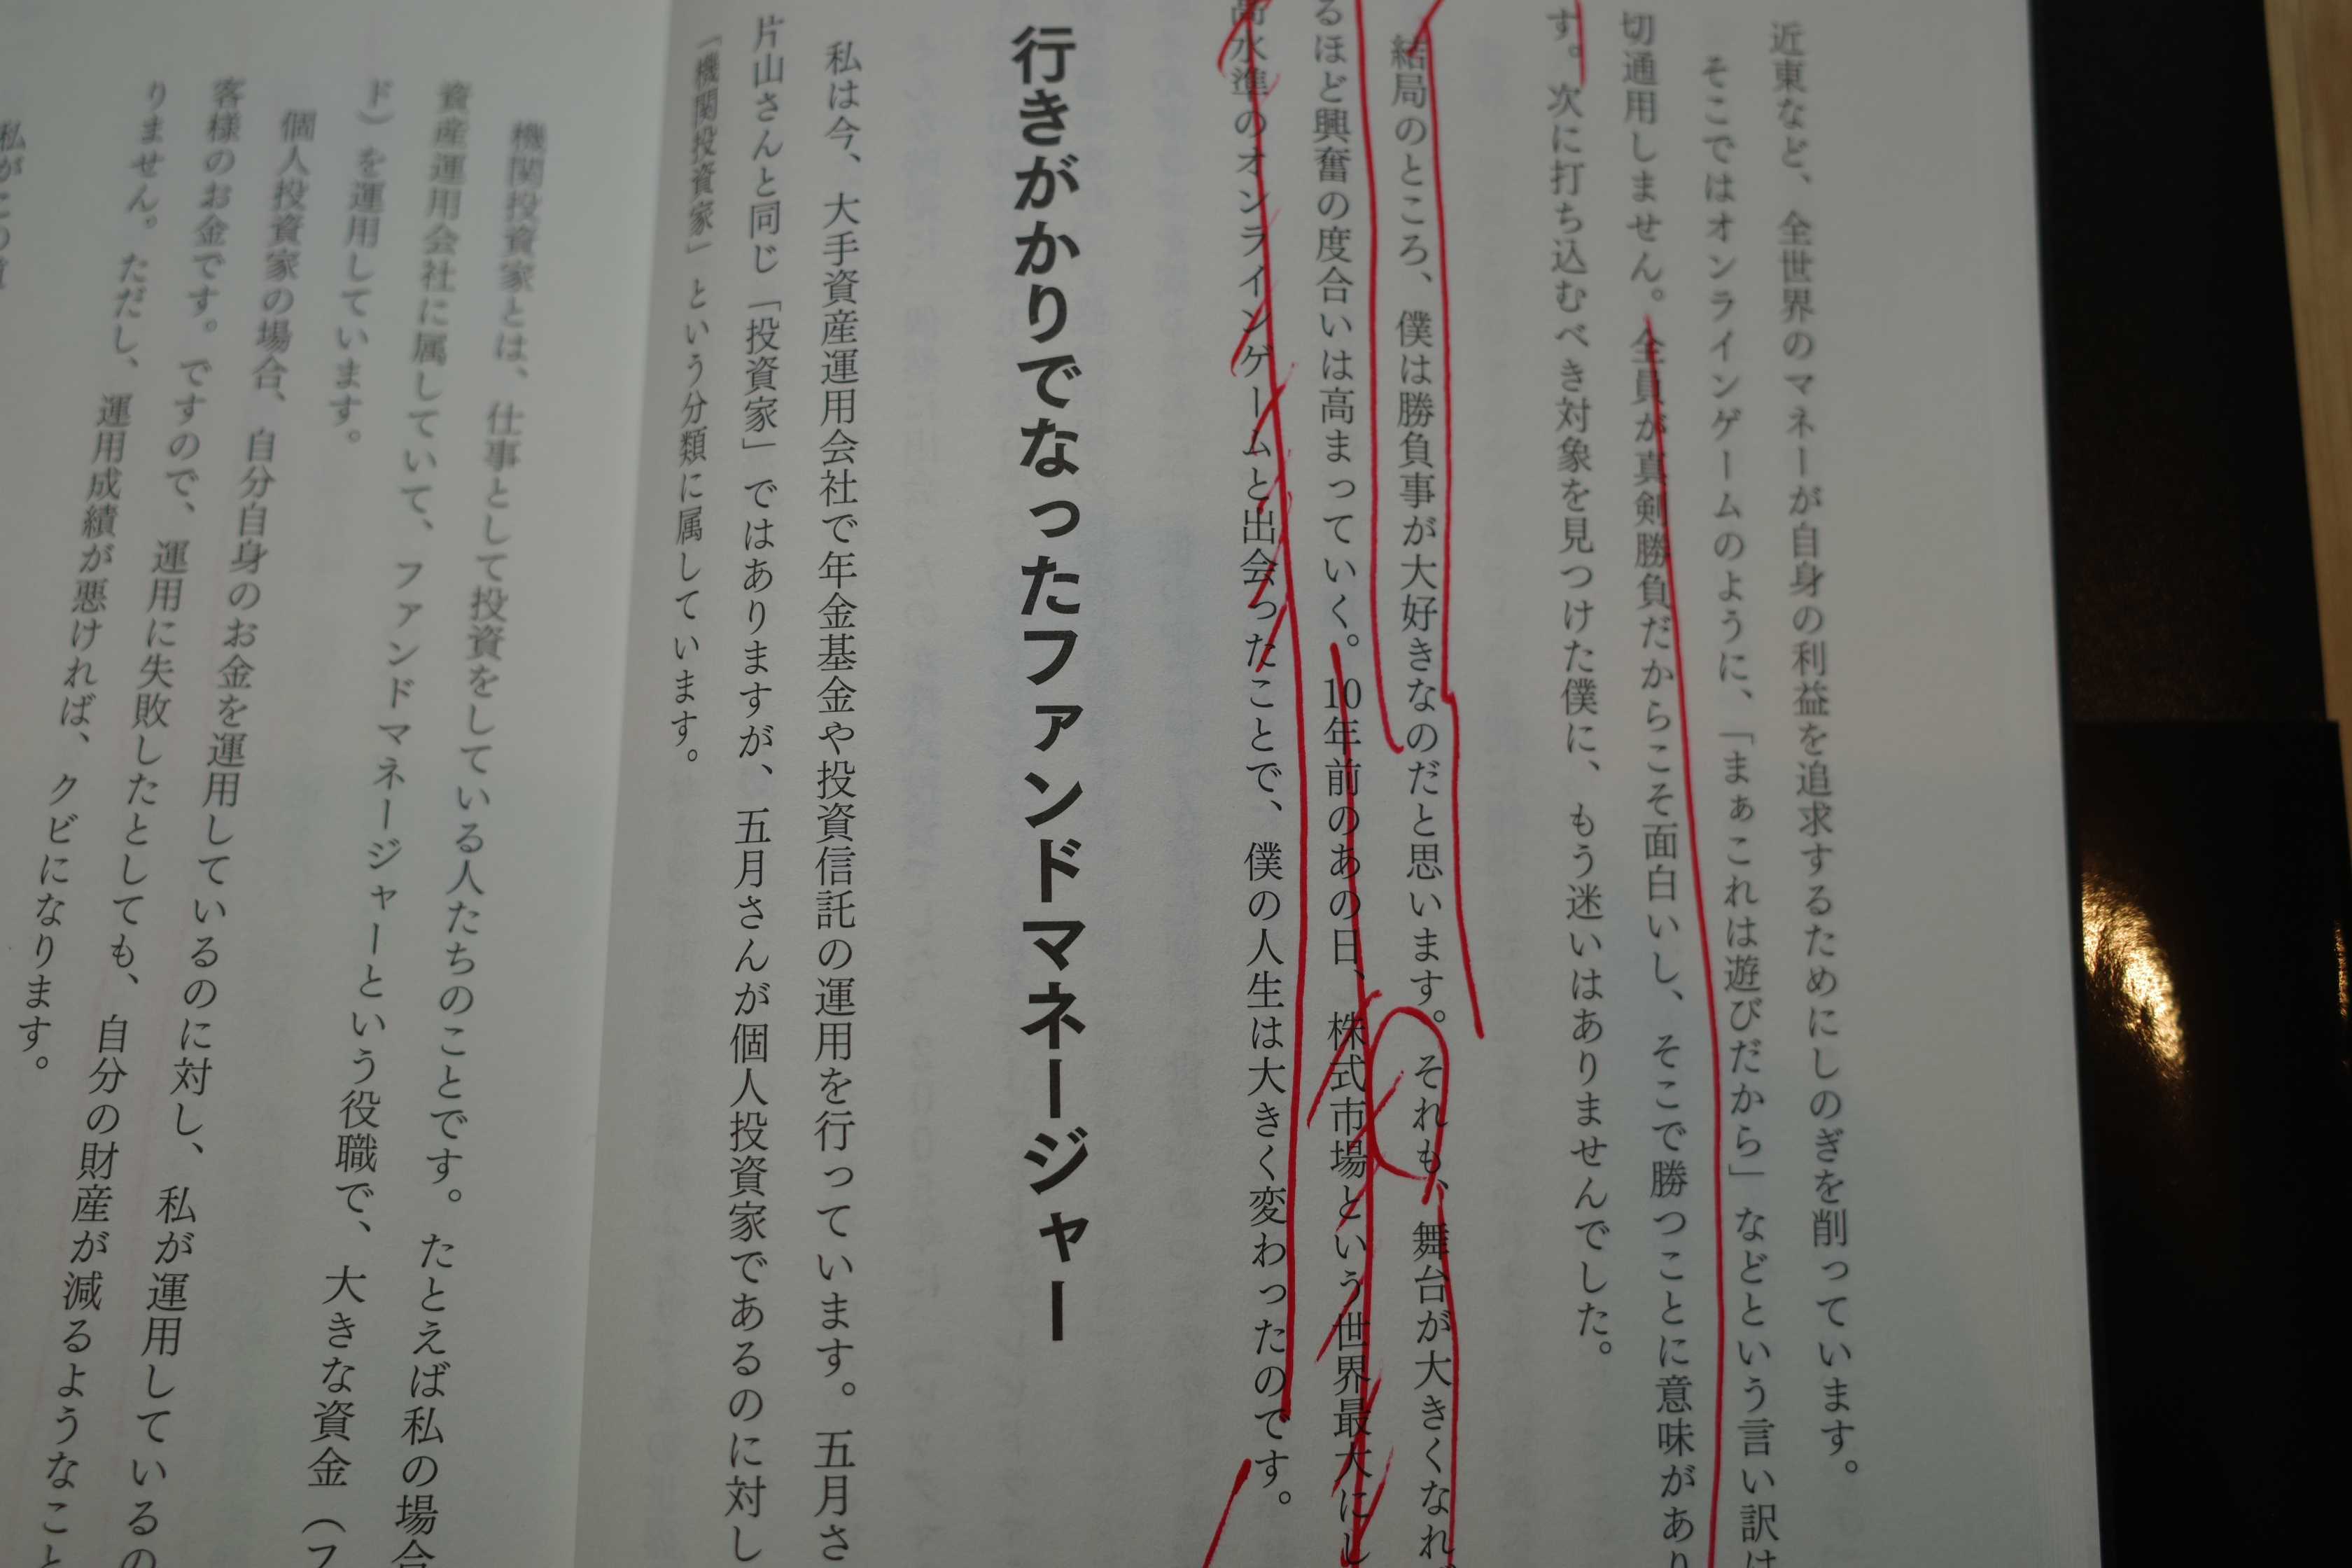 近東など、全世界のマネーが自身の利益を追求するためにしのぎを削っています。
そこではオンラインゲームのように、「まぁこれは遊びだから」などという言い訳は
切通用しません。全員が真剣勝負だからこそ面白いし、そこで勝つことに意味があり
す。次に打ち込むべき対象を見つけた僕に、もう迷いはありませんでした。
結局のところ、僕は勝負事が大好きなのだと思います。それも、舞台が大きくなれ
るほど興奮の度合いは高まっていく。10年前のあの日、株式市場という世界最大にし
高水準のオンラインゲームと出会ったことで、僕の人生は大きく変わったのです。
行きがかりでなったファンドマネージャー
私は今、大手資産運用会社で年金基金や投資信託の運用を行っています。五月さ
片山さんと同じ「投資家」ではありますが、五月さんが個人投資家であるのに対し
「機関投資家」という分類に属しています。
機関投資家とは、仕事として投資をしている人たちのことです。たとえば私の場合
資産運用会社に属していて、ファンドマネージャーという役職で、大きな資金（フ
ド）を運用しています。
個人投資家の場合、自分自身のお金を運用しているのに対し、私が運用しているの
客様のお金です。ですので、運用に失敗したとしても、自分の財産が減るようなこと
りません。ただし、運用成績が悪ければ、クビになります。
私がこの